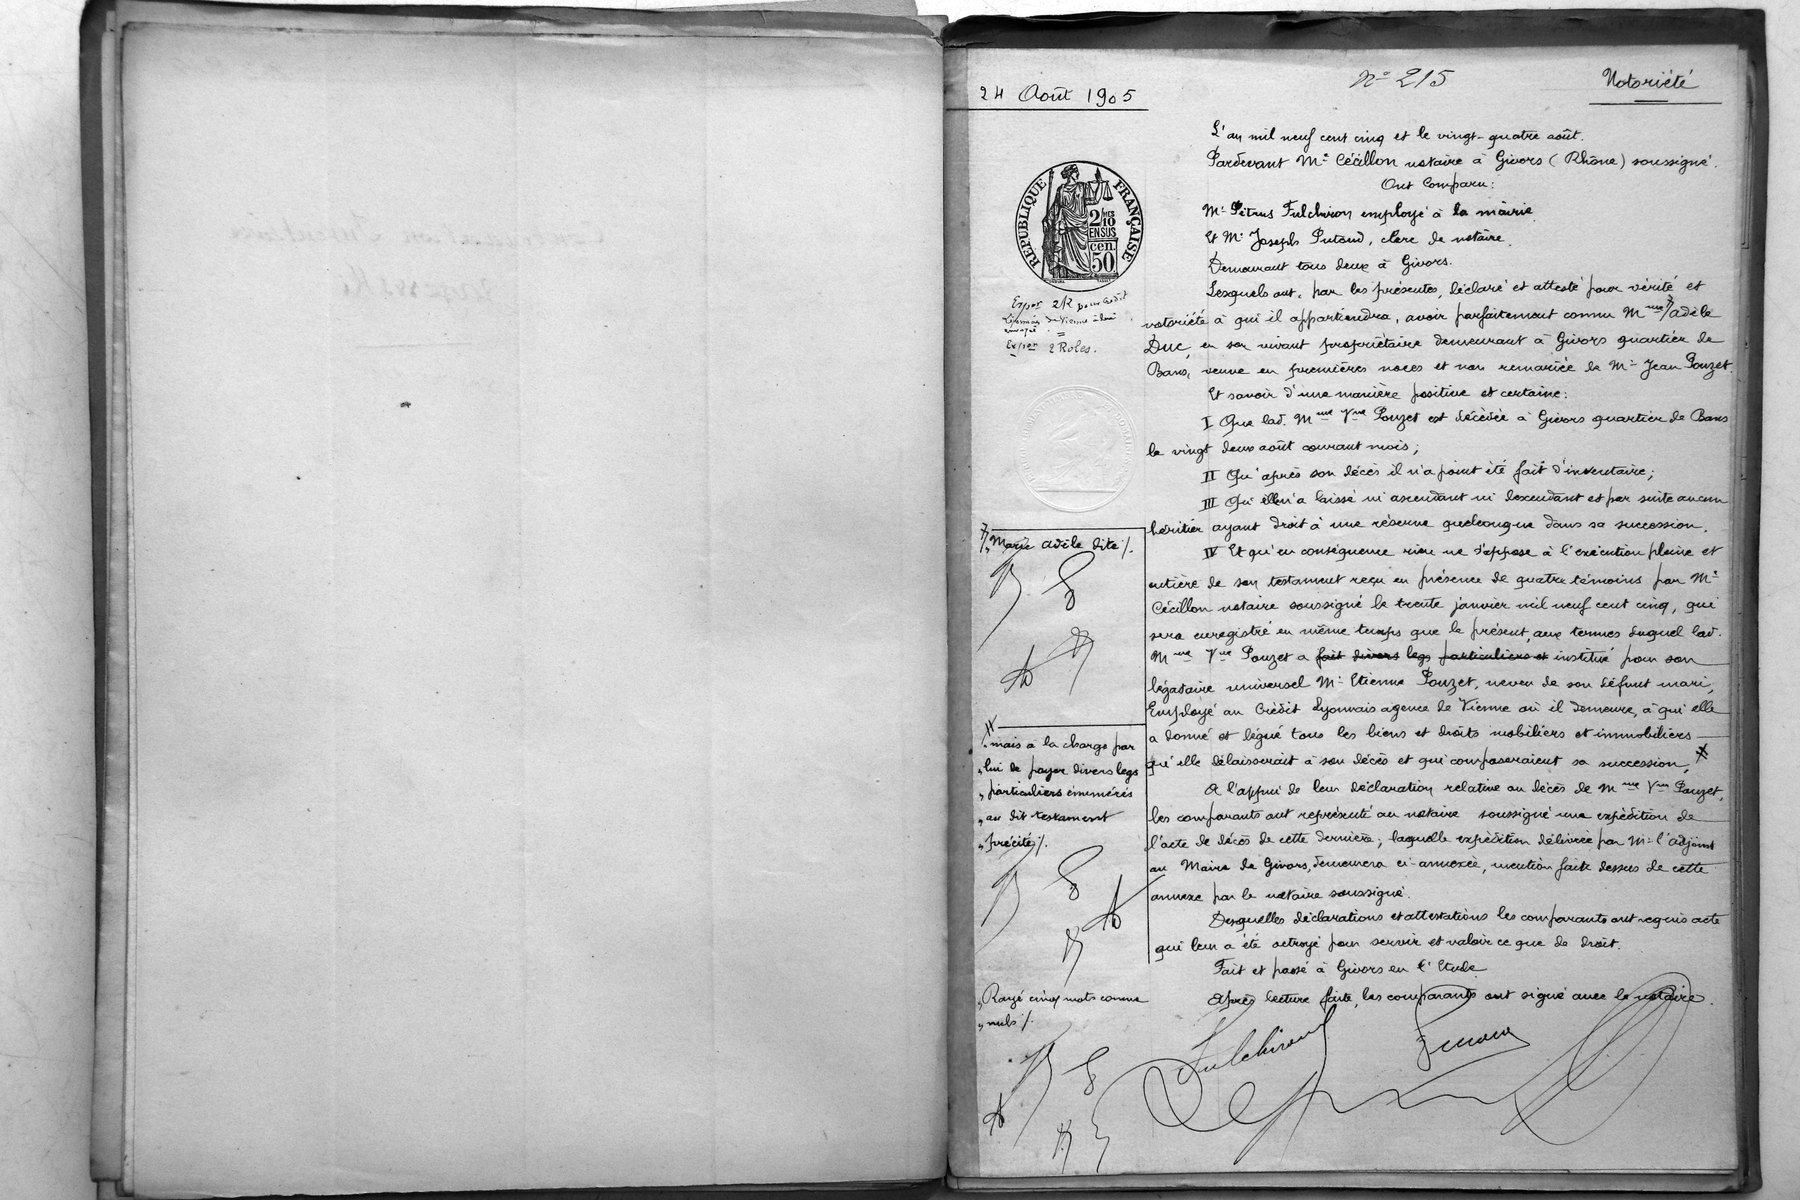 24 Août 1905
N° 215
Notoriété
L'an mil neuf cent cinq et le vingt-quatre août.
Pardevant Me Cécillon notaire à Givors (Rhône) soussigné.
Ont Comparu:
Mr Pétrus Fulchiron employé à la mairie
Et Mr Joseph Putoud, clerc de notaire.
Demeurant tous deux à Givors.
Lesquels ont, par les présentes, déclaré et attesté pour vérité et
notoriété à qui il appartiendra, avoir parfaitement connu Mme adèle
Duc, en son vivant propriétaire demeurant à Givors quartier de
Bans, veuve en premières noces et non remariée de Mr Jean Pouzet.
Et savoir d'une manière positive et certaine:
I Que lad. Mme Vve Pouzet est décédée à Givors quartier de Bans
le vingt deux août courant mois;
II Qu'après son décès il n'a point été fait d'inventaire;
III Qu'elle n'a laissé ni ascendant ni descendant et par suite aucun
héritier ayant droit à une réserve quelconque dans sa succession.
IV Et qu'en conséquence rien ne s'oppose à l'exécution pleine et
entière de son testament reçu en présence de quatre témoins par Me
Cécillon notaire soussigné le trente janvier mil neuf cent cinq, qui
sera enregistré en même temps que le présent, aux termes duquel lad.
Mme Vve Pouzet a fait divers legs particuliers et institué pour son
légataire universel Mr Etienne Pouzet, neveu de son défunt mari,
Employé au Crédit Lyonnais agence de Vienne où il demeure, à qui elle
a donné et légué tous les biens et droits mobiliers et immobiliers
qu'elle délaisserait à son décès et qui composeraient sa succession,
A l'appui de leur déclaration relative au décès de Mme Vve Pouzet,
les comparants ont représenté au notaire soussigné une expédition de
l'acte de décès de cette dernière; laquelle expédition délivrée par Mr l'adjoint
au Maire de Givors, demeurera ci-annexée, mention faite dessus de cette
annexe par le notaire soussigné.
Desquelles déclarations et attestations les comparants ont requis acte
qui leur a été octroyé pour servir et valoir ce que de droit.
Fait et passé à Givors en l'Etude
Après lecture faite, les comparants ont signé avec le notaire.
Fulchiron
RÉPUBLIQUE FRANÇAISE
2/10
EN SUS
cen.
50
2 Roles.
Marie adèle dite /.
mais à la charge par
lui de payer divers legs
particuliers énumérés
au dit testament
précité /.
Rayé cinq mots comme
nuls /.